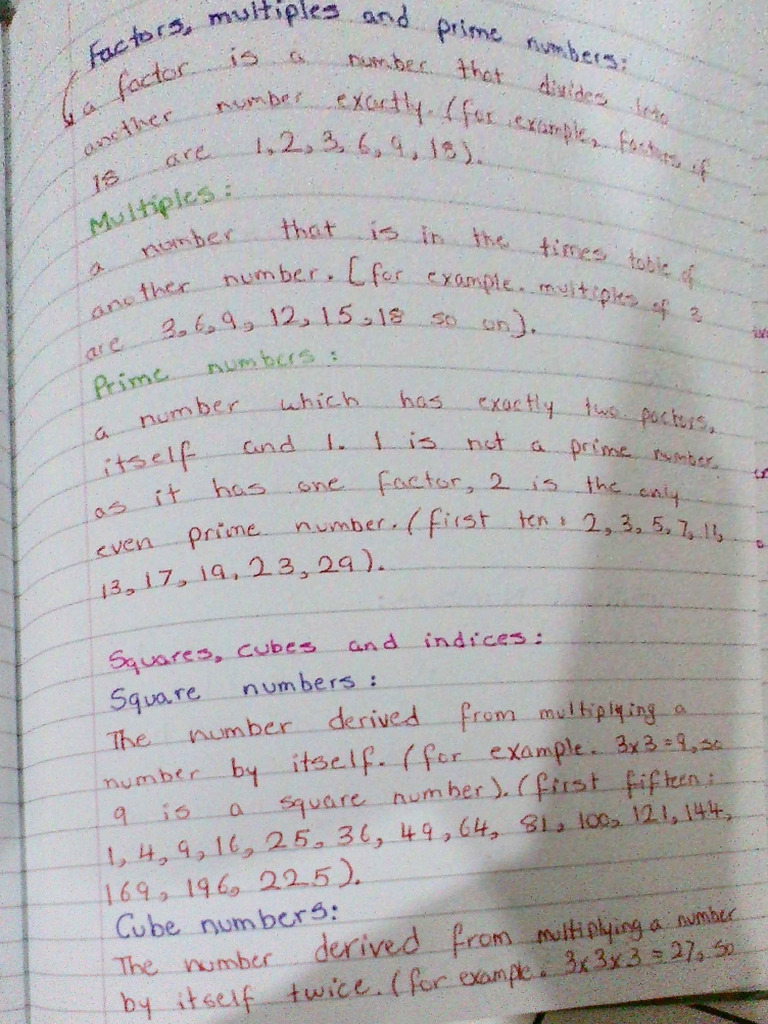 Factors, multiples and prime numbers:
a factor is a number that divides into
another number exactly. (for example, factors of
18 are 1, 2, 3, 6, 9, 18).
Multiples:
a number that is in the times table of
another number. [for example. multiples of 3
are 3, 6, 9, 12, 15, 18 so on).
Prime numbers:
a number which has exactly two factors,
itself and 1. 1 is not a prime number
as it has one factor, 2 is the only
even prime number. (first ten: 2, 3, 5, 7, 11,
13, 17, 19, 23, 29).
Squares, cubes and indices:
Square numbers:
The number derived from multiplying a
number by itself. (for example. 3x3=9, so
9 is a square number). (first fifteen:
1, 4, 9, 16, 25, 36, 49, 64, 81, 100, 121, 144,
169, 196, 225).
Cube numbers:
The number derived from multiplying a number
by itself twice. (for example. 3x3x3=27, so